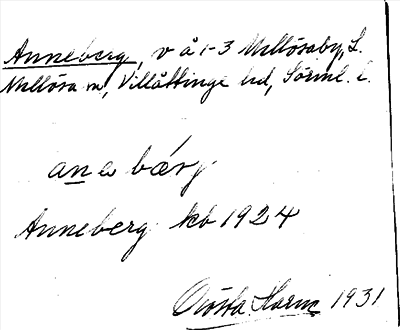 Anneberg, v å 1-3 Mellösaby, L.
Mellösa sn, Villåttinge hd, Sörml. l.
ana bærj
Anneberg kb 1924
Gösta Harne 1931